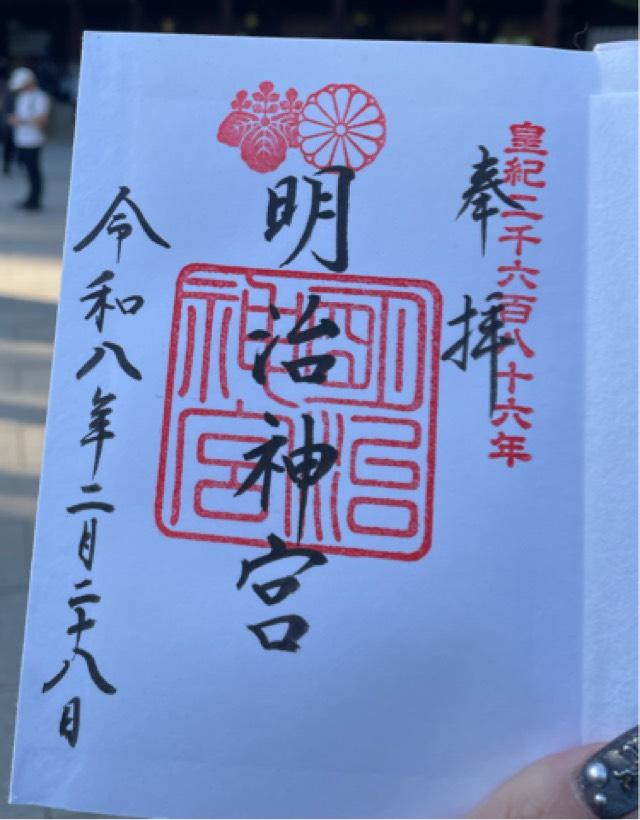 皇紀二千六百八十六年
奉拝
明治神宮
明治神宮
令和八年二月二十八日